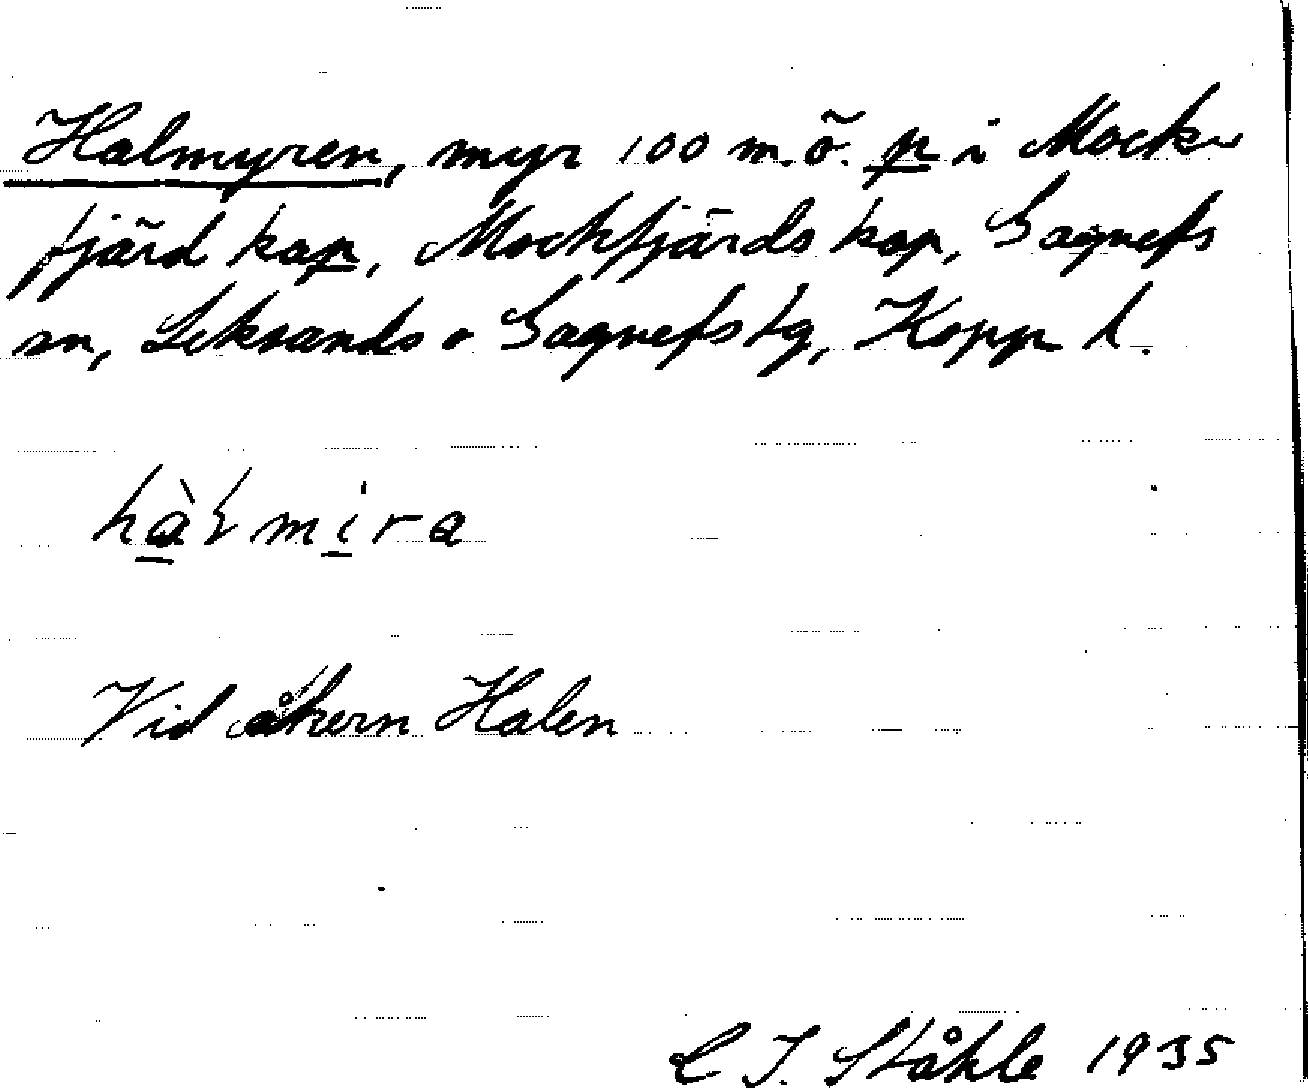 Halmyren, myr 100 m.ö. p i Mock-
fjärd kap, Mockfjärds kap, Gagnefs
sn, Leksands o Gagnefs tg, Kopp l.
hàłmira
Vid åkern Halen
L I. Ståhle 1935